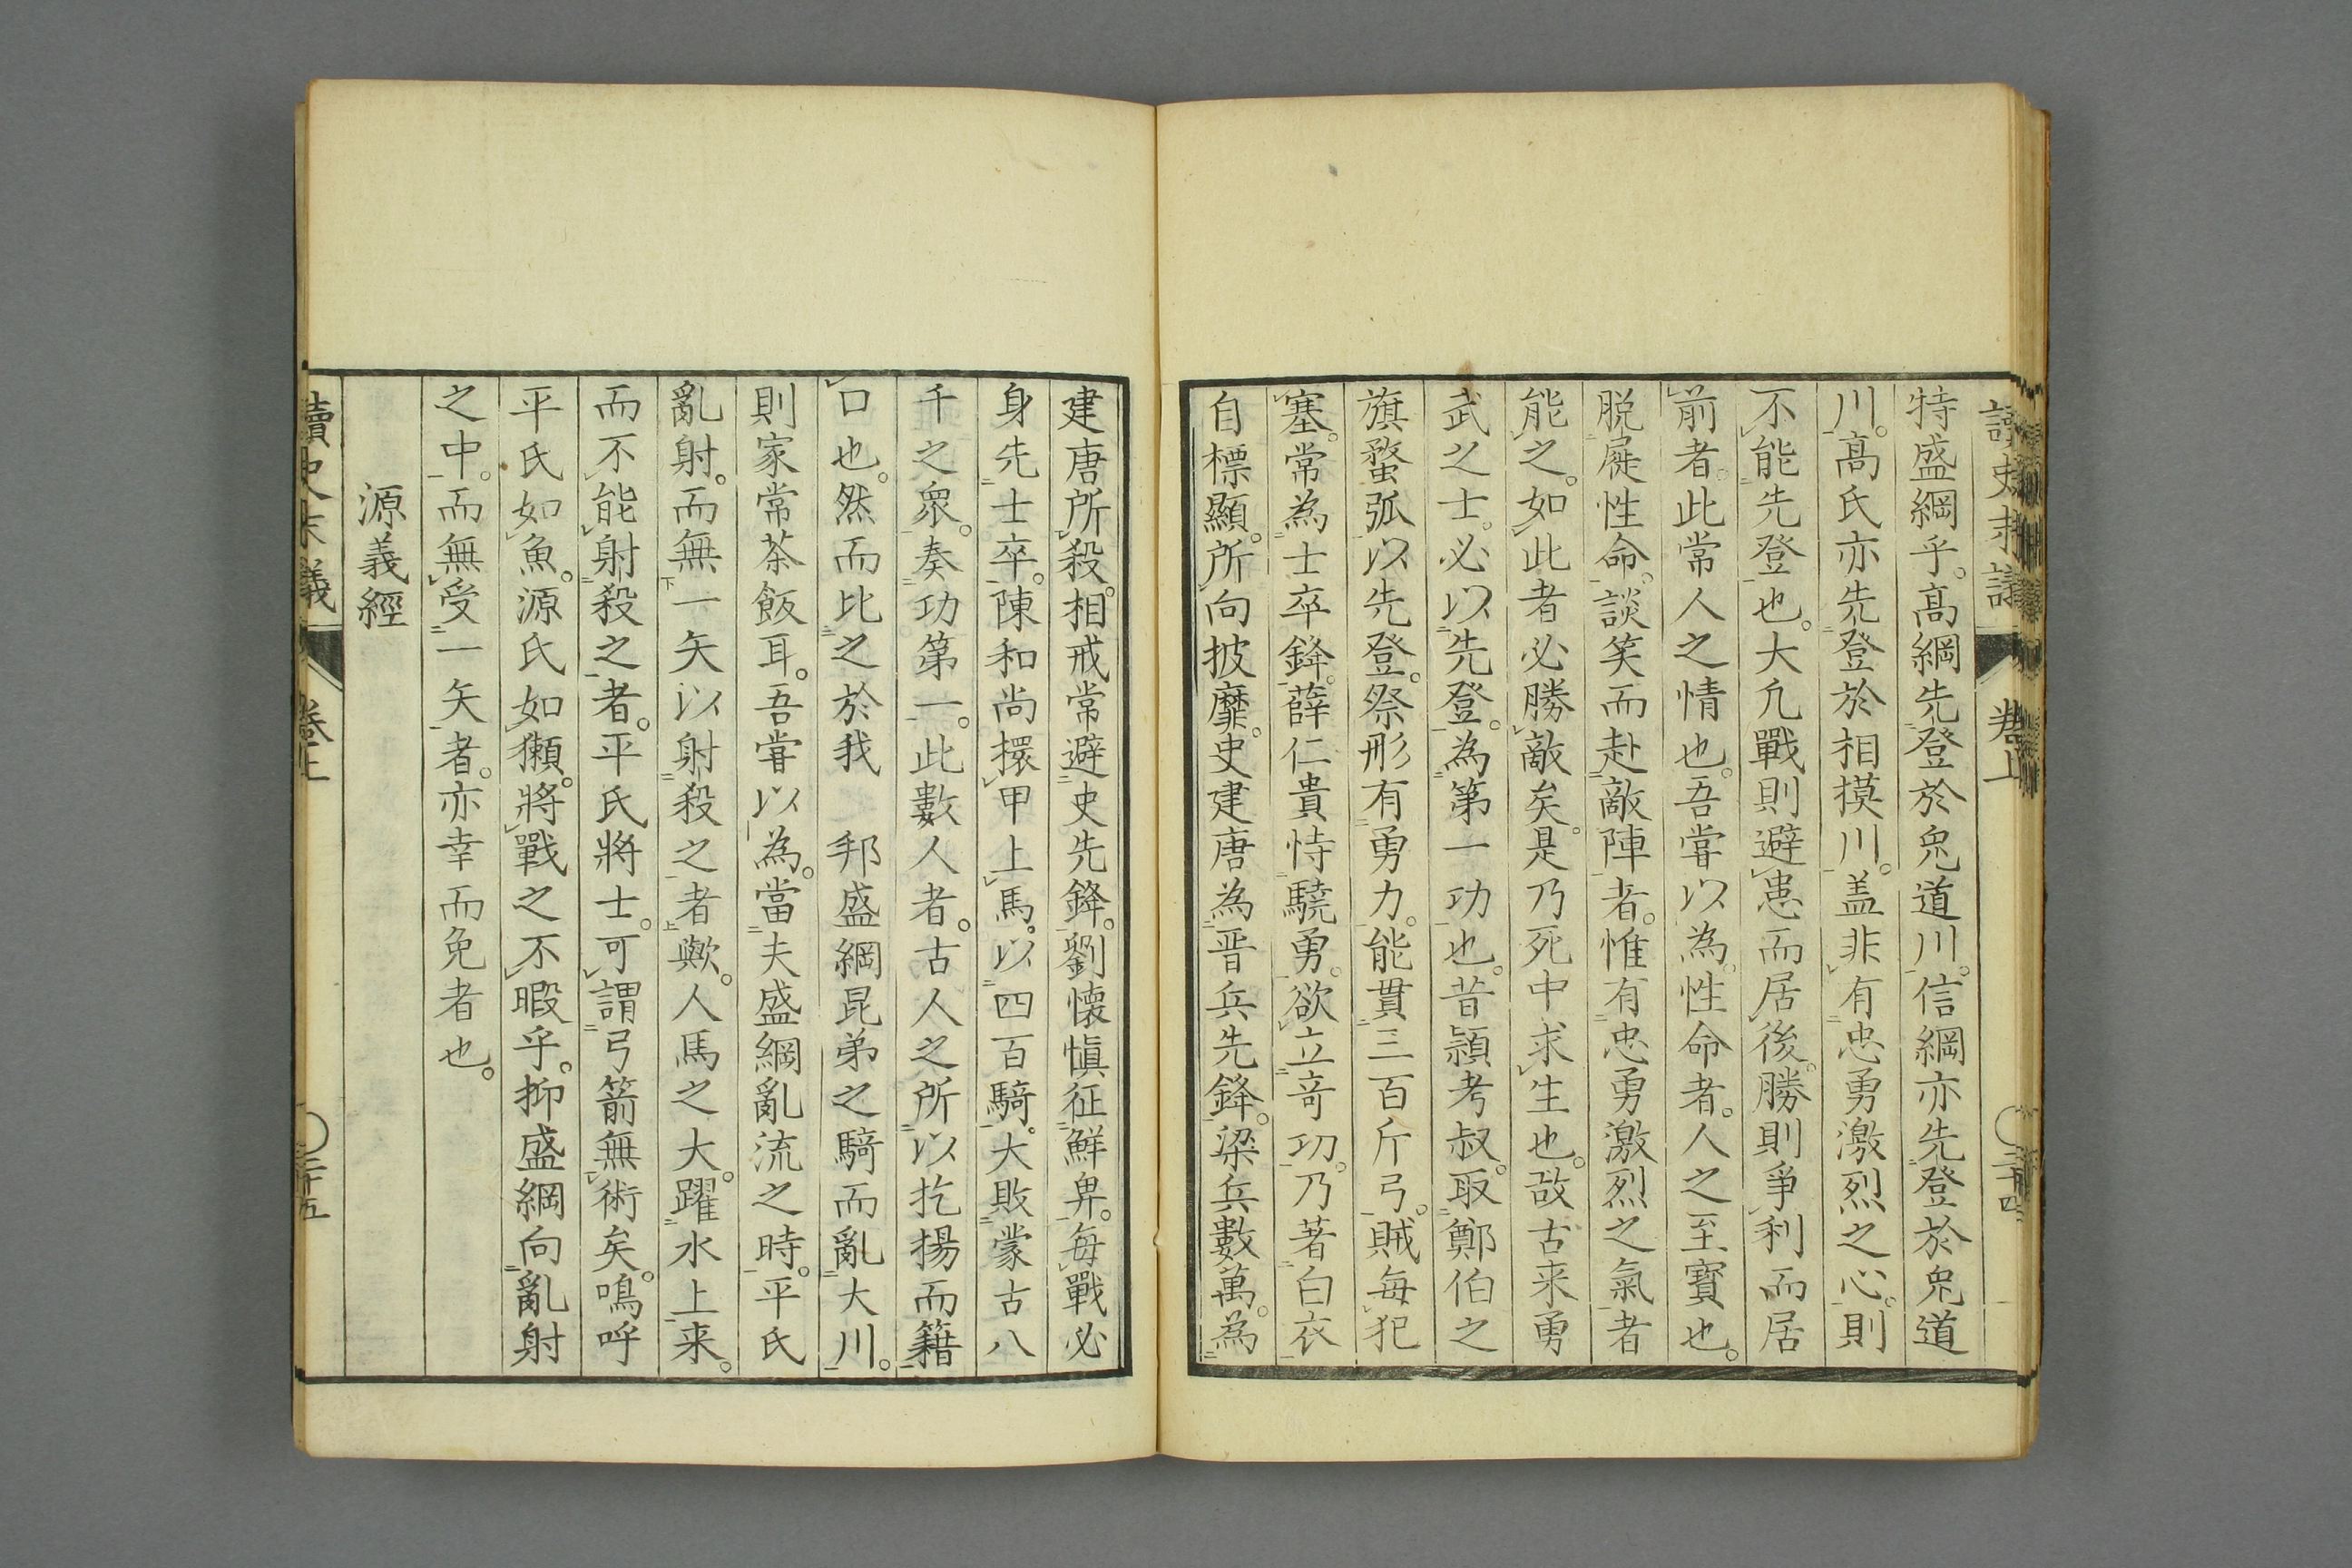 讀史末議 卷上 〇二十四
特盛綱乎。高綱先登於兎道川。信綱亦先登於兎道
川。高氏亦先登於相摸川。盖非有忠勇激烈之心。則
不能先登也。大凢戰則避患而居後。勝則爭利而居
前者。此常人之情也。吾甞以為。性命者。人之至寳也。
脱屣性命。談笑而赴敵陣者。惟有忠勇激烈之氣者
能之。如此者必勝敵矣。是乃死中求生也。故古来勇
武之士。必以先登。為第一功也。昔頴考叔。取鄭伯之
旗蝥弧以先登。祭形有勇力。能貫三百斤弓。賊每犯
塞。常為士卒鋒。薛仁貴恃驍勇。欲立竒功。乃著白衣
自標顯。所向披靡。史建唐為晋兵先鋒。梁兵數萬。為
建唐所殺。相戒常避史先鋒。劉懐愼征鮮卑。每戰必
身先士卒。陳和尚擐甲上馬。以四百騎。大敗蒙古八
千之衆。奏功第一。此數人者。古人之所以扢揚而籍
口也。然而比之於我 邦盛綱昆弟之騎而亂大川。
則家常茶飯耳。吾甞以為。當夫盛綱亂流之時。平氏
亂射。而無一矢以射殺之者歟。人馬之大。躍水上来。
而不能射殺之者。平氏將士。可謂弓箭無術矣。鳴呼
平氏如魚。源氏如獺。將戰之不暇乎。抑盛綱向亂射
之中。而無受一矢者。亦幸而免者也。
源義經
讀史末議 卷上 〇二十五